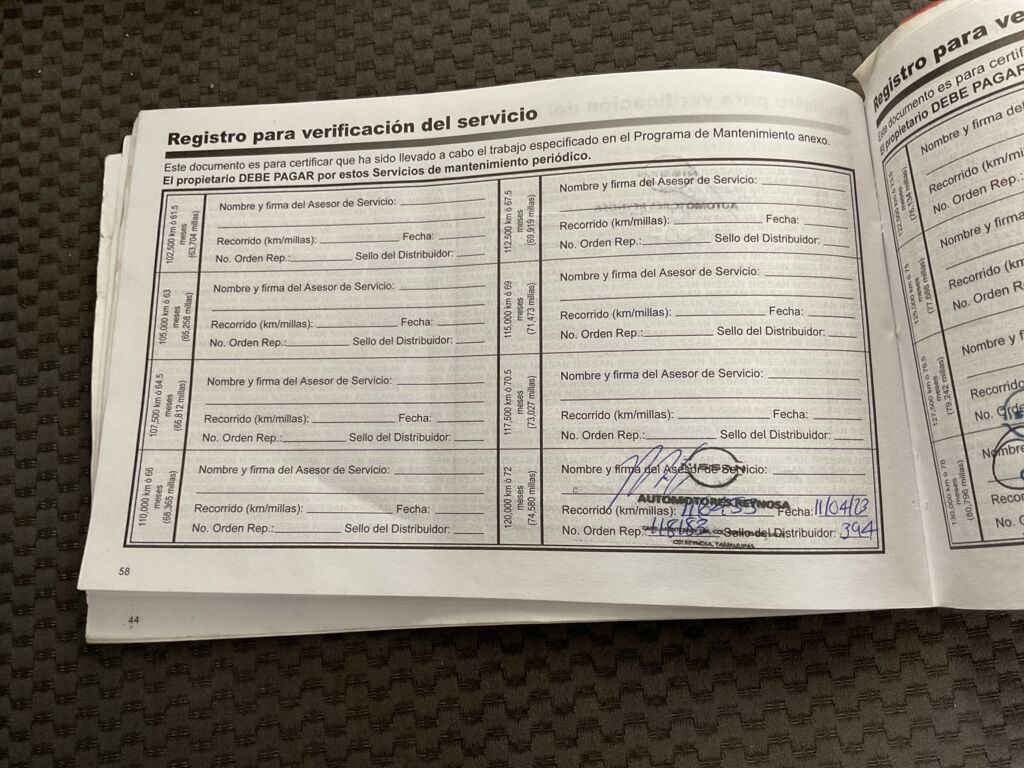 Registro para verificación del servicio
Este documento es para certificar que ha sido llevado a cabo el trabajo especificado en el Programa de Mantenimiento anexo.
El propietario DEBE PAGAR por estos Servicios de mantenimiento periódico.
102,500 km ó 61.5
meses
(63,704 millas)
Nombre y firma del Asesor de Servicio:
Recorrido (km/millas): Fecha:
No. Orden Rep.: Sello del Distribuidor:
105,000 km ó 63
meses
(65,258 millas)
Nombre y firma del Asesor de Servicio:
Recorrido (km/millas): Fecha:
No. Orden Rep.: Sello del Distribuidor:
107,500 km ó 64.5
meses
(66,812 millas)
Nombre y firma del Asesor de Servicio:
Recorrido (km/millas): Fecha:
No. Orden Rep.: Sello del Distribuidor:
110,000 km ó 66
meses
(68,365 millas)
Nombre y firma del Asesor de Servicio:
Recorrido (km/millas): Fecha:
No. Orden Rep.: Sello del Distribuidor:
112,500 km ó 67.5
meses
(69,919 millas)
Nombre y firma del Asesor de Servicio:
Recorrido (km/millas): Fecha:
No. Orden Rep.: Sello del Distribuidor:
115,000 km ó 69
meses
(71,473 millas)
Nombre y firma del Asesor de Servicio:
Recorrido (km/millas): Fecha:
No. Orden Rep.: Sello del Distribuidor:
117,500 km ó 70.5
meses
(73,027 millas)
Nombre y firma del Asesor de Servicio:
Recorrido (km/millas): Fecha:
No. Orden Rep.: Sello del Distribuidor:
120,000 km ó 72
meses
(74,580 millas)
Nombre y firma del Asesor de Servicio:
NISSAN
AUTOMOTORES REYNOSA
Recorrido (km/millas): Fecha: 11/04/23
No. Orden Rep.: 118183 Sello del Distribuidor: 394
CD. REYNOSA, TAMAULIPAS
58
44
Registro para ve
Este documento es para certif
El propietario DEBE PAGAR
Nombre y firma del
Recorrido (km/mi
No. Orden Rep.:
125,000 km ó 75
meses
(77,688 millas)
Nombre y firma
Recorrido (km
No. Orden R
127,500 km ó 76.5
meses
(79,242 millas)
Nombre y f
Recorrido
No. Orde
130,000 km ó 78
meses
(80,796 millas)
Nombre
Recor
No. C